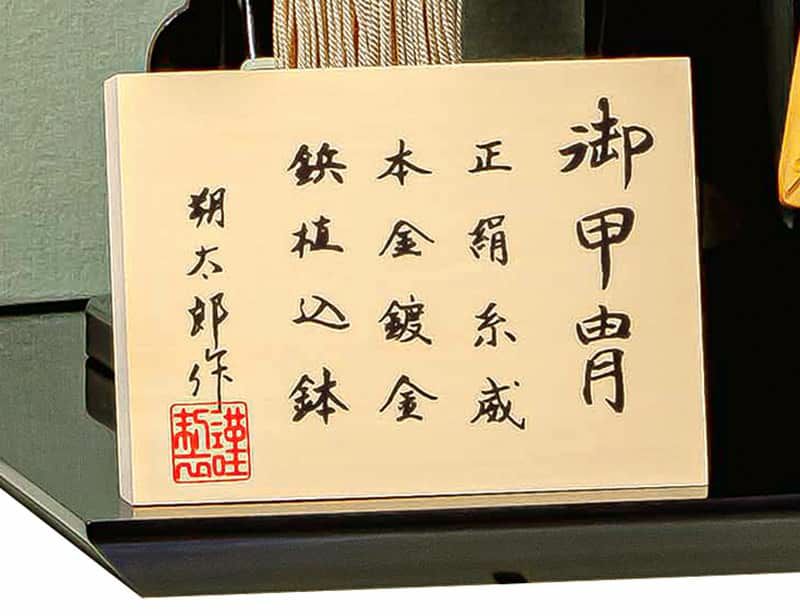 御甲冑
正絹糸威
本金鍍金
鋲植込鉢
朔太郎作
謹製